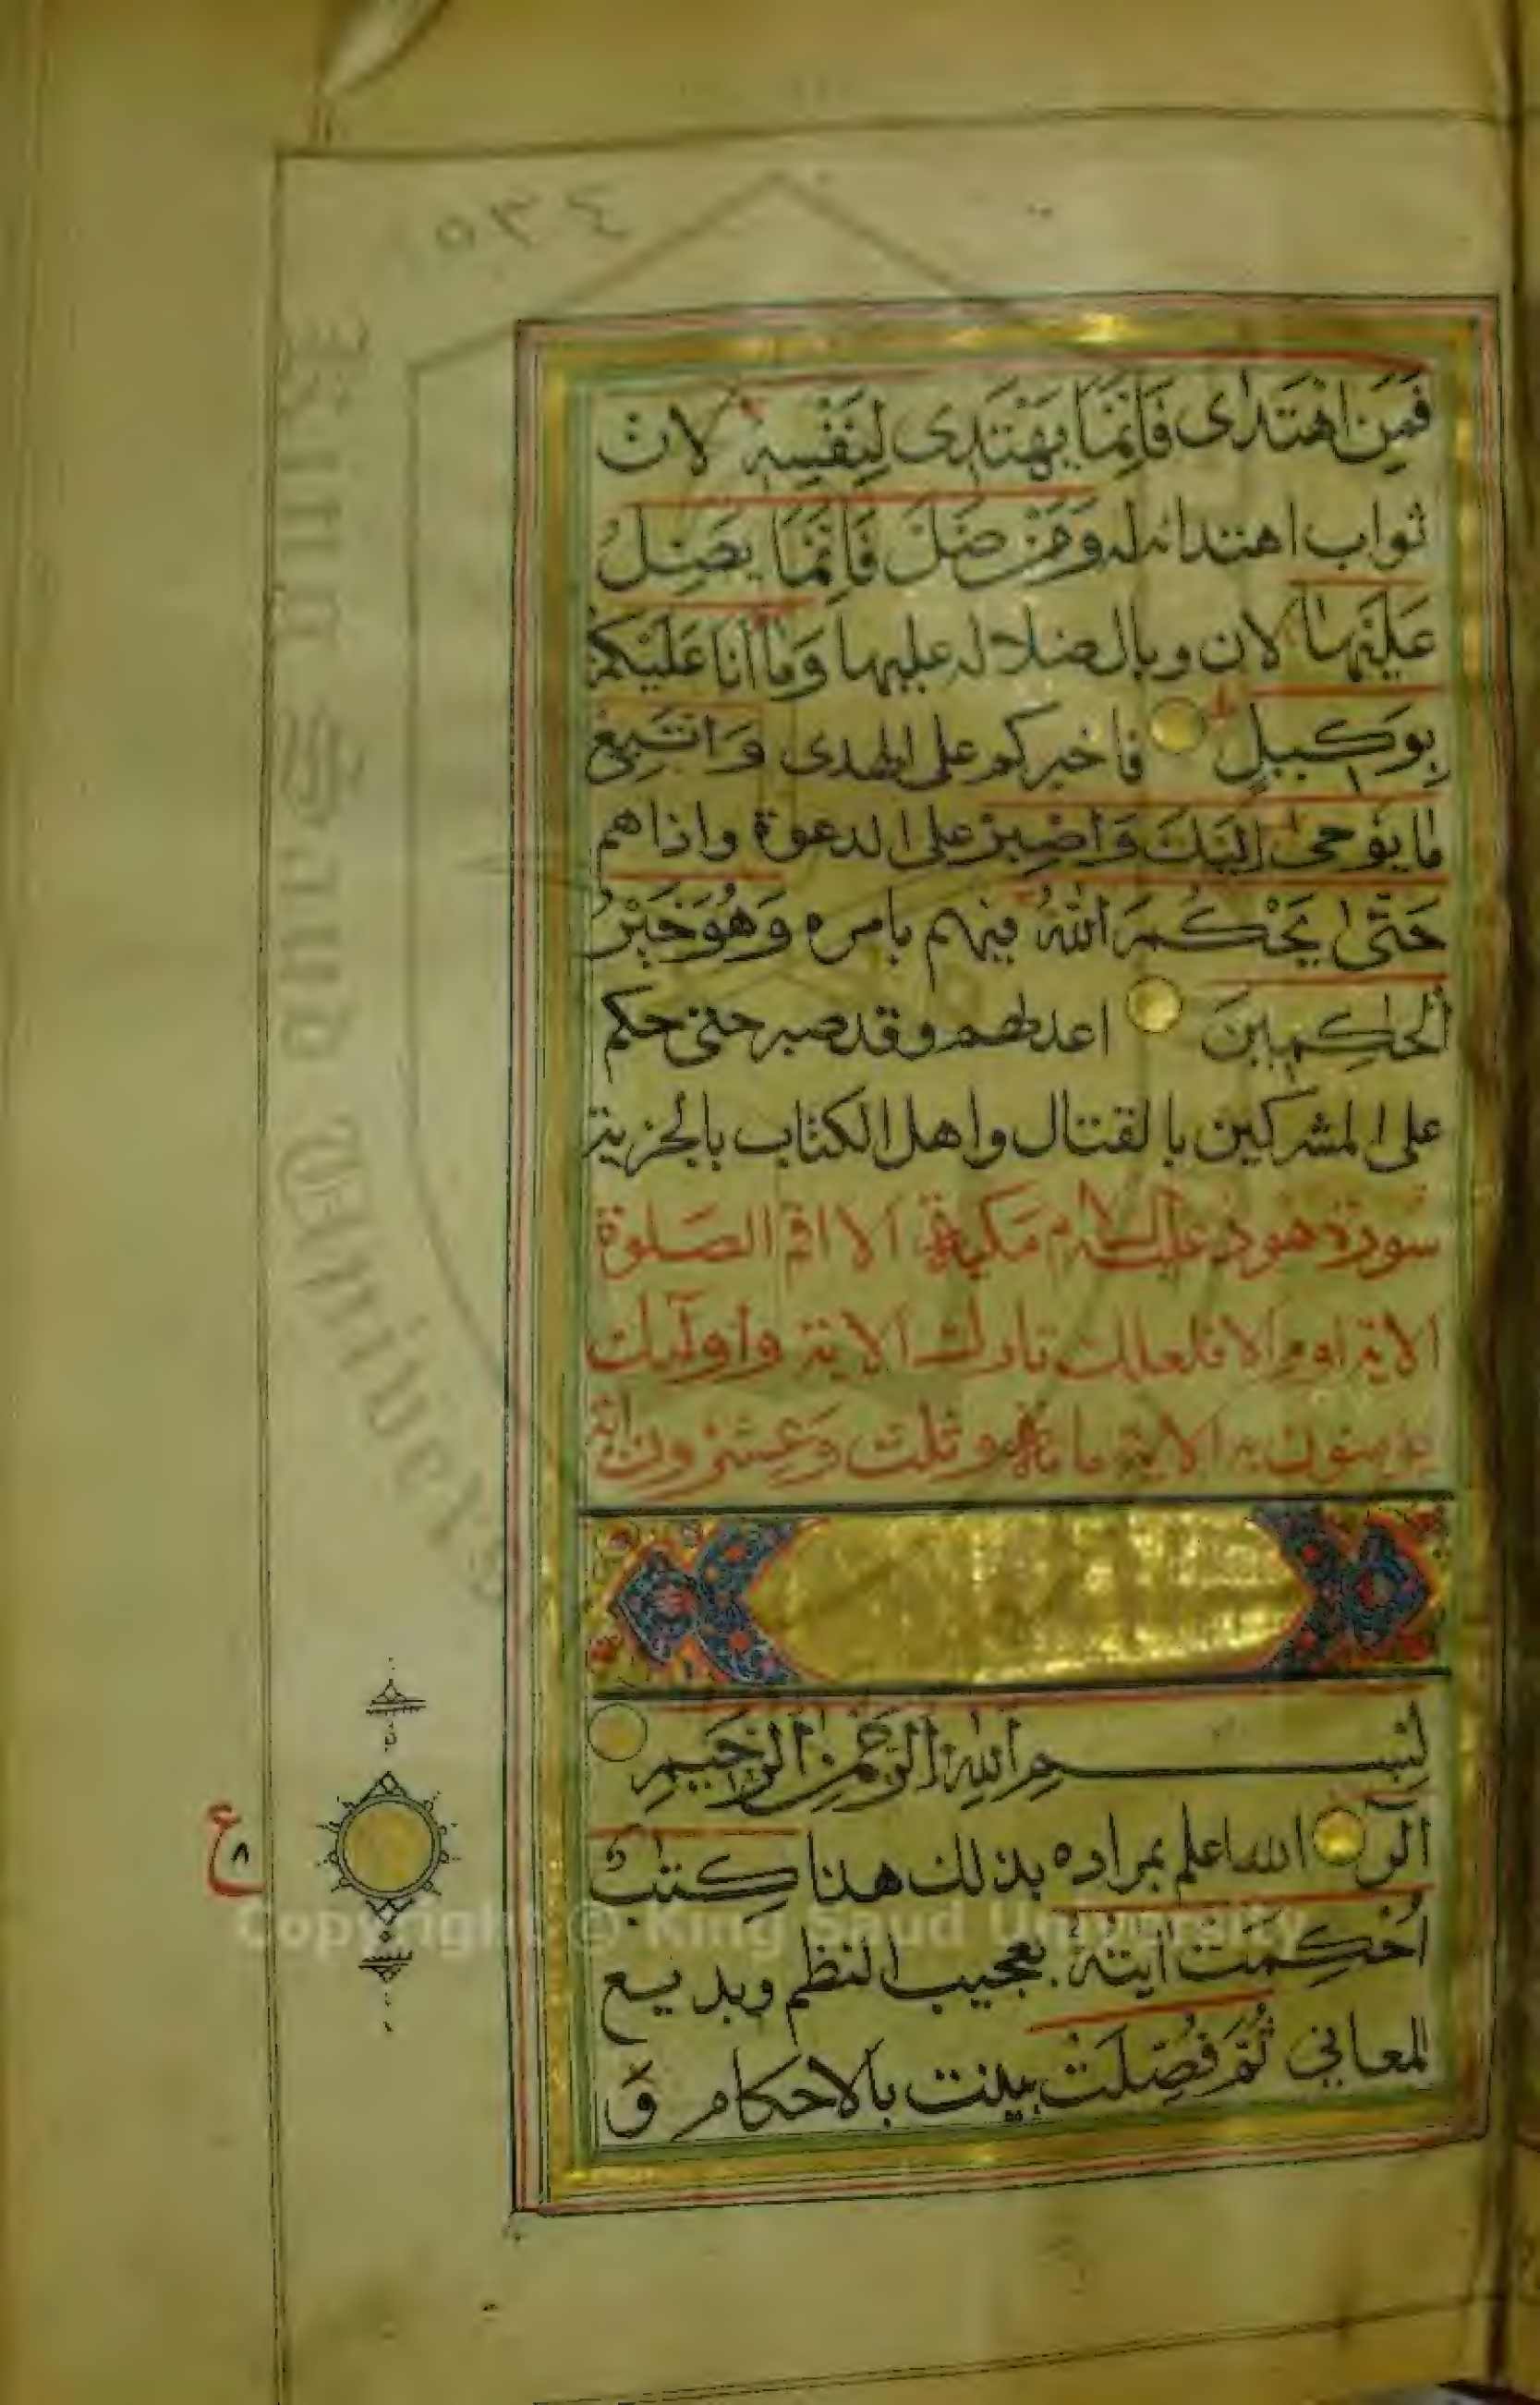 ٥٣٤
فَمَنِ اهْتَدٰى فَاِنَّمَا يَهْتَدِى لِنَفْسِهٖ لان
ثواب اهتدائه له وَمَنْ ضَلَّ فَاِنَّمَا يَضِلُّ
عَلَيْهَا لان وبال ضلاله عليها وَمَا اَنَا عَلَيْكُمْ
بِوَكِيلٍ فاجبركم على الهدى وَاتَّبِعْ
مَا يُوحٰى اِلَيْكَ وَاصْبِرْ على الدعوة واذاهم
حَتّٰى يَحْكُمَ اللّٰهُ فيهم بامره وَهُوَ خَيْرُ
الْحٰكِمِينَ اعدلهم وقد صبر حتى حكم
على المشركين بالقتال واهل الكتاب بالجزية
سورة هود عليه السلام مكية الا اقم الصلوة
الاية او الا فلعلك تارك الاية واولئك
يؤمنون به الاية مائة وثلث وعشرون اية
بِسْمِ اللّٰهِ الرَّحْمٰنِ الرَّحِيمِ
الٓرٰ الله اعلم بمراده بذلك هذا كِتٰبٌ
اُحْكِمَتْ اٰيٰتُهٗ بعجيب النظم وبديع
المعاني ثُمَّ فُصِّلَتْ بينت بالاحكام وَ
ع
٨
King Saud University
Copyright © King Saud University